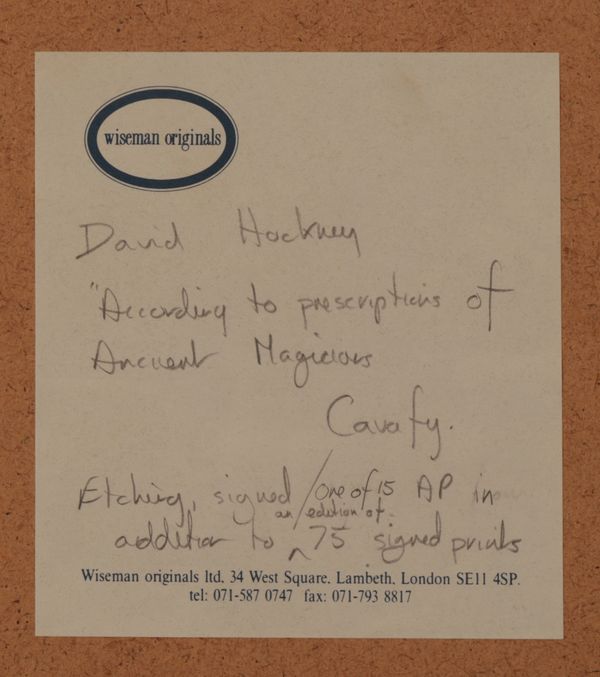 wiseman originals
David Hockney
"According to prescriptions of
Ancient Magicians
Cavafy.
Etching, signed / one of 15 AP in
an edition of
addition to ^ 75 signed prints
Wiseman originals ltd, 34 West Square, Lambeth, London SE11 4SP.
tel: 071-587 0747 fax: 071-793 8817